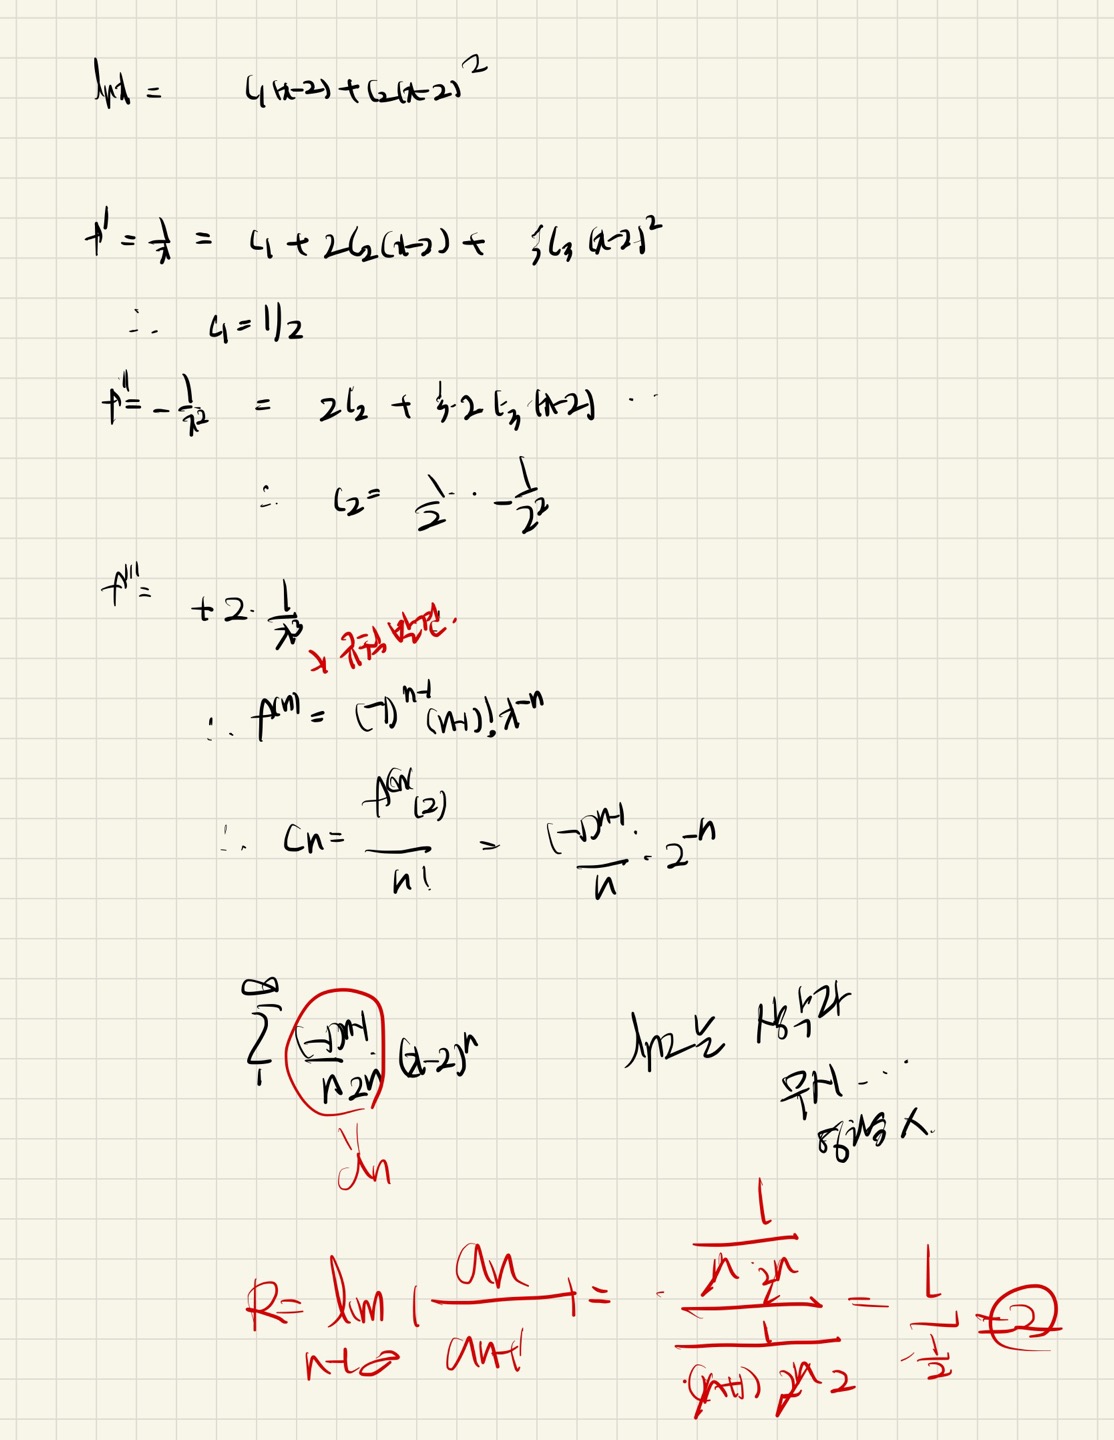 lnx = C₁(x-2) + C₂(x-2)²
f' = 1/x = C₁ + 2C₂(x-2) + 3C₃(x-2)²
∴ C₁ = 1/2
f'' = -1/x² = 2C₂ + 3·2C₃(x-2) ··
∴ C₂ = 1/2 · -1/2²
f''' = +2· 1/x³
↘ 규칙 발견.
∴ f⁽ⁿ⁾ = (-1)ⁿ⁻¹ (n-1)! x⁻ⁿ
∴ Cn = f⁽ⁿ⁾(2)/n! = (-1)ⁿ⁻¹/n · 2⁻ⁿ
∞ Σ 1 (-1)ⁿ⁻¹/n 2ⁿ (x-2)ⁿ
ln2는 상수라
무시 ···
영향 X.
an
R = lim n→∞ |an/an+1| = (1/n·2ⁿ)/(1/(n+1) 2ⁿ 2) = 1/(1/2) = 2